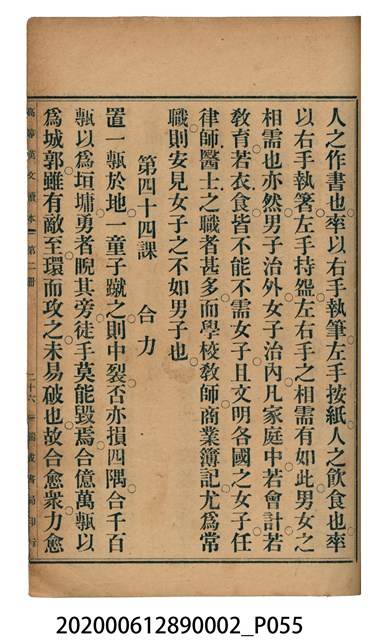 人之作書也率以右手執筆左手按紙人之飲食也率
以右手執箸左手持盌左右手之相需有如此男女之
相需也亦然男子治外女子治內凡家庭中若會計若
敎育若衣食皆不能不需女子且文明各國之女子任
律師醫士之職者甚多而學校敎師商業簿記尤爲常
職則安見女子之不如男子也
第四十四課　合力
置一甎於地一童子蹴之則中裂否亦損四隅合千百
甎以爲垣墉勇者睨其旁徒手莫能毀焉合億萬甎以
爲城郭雖有敵至環而攻之未易破也故合愈衆力愈
高等漢文讀本 第二冊 二十六
202000612890002_P055